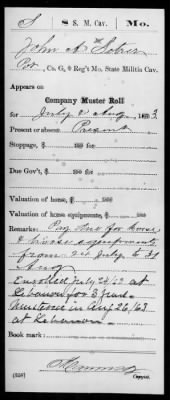 S 8 S. M. Cav. Mo.
John A
Pvt, Co. G, 8 Reg't Mo. State Militia Cav.
Appears on
Company Muster Roll
for July & Aug, 1863
Present or absent Present
Stoppage, $ 100 for
Due Gov't, $ 100 for
Valuation of horse, $ 100
Valuation of horse equipments, $ 100
Remarks: Pay due for horse
& horse equipments
from 24 July to 31
Aug
Enrolled July 24/63 at
Lebanon for 3 years
Mustered in Aug 26/63
at Lebanon
Book mark:
(858) Copyist.